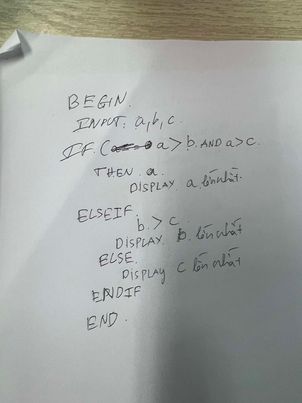 BEGIN.
INPUT: a, b, c.
IF. ( a > b. AND a > c.
THEN. a.
DISPLAY. a lớn nhất.
ELSEIF.
b. > c
DISPLAY. b. lớn nhất
ELSE.
DISPLAY c lớn nhất
ENDIF
END.